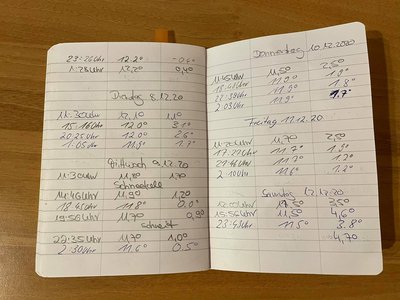 23:26 Uhr 12.2° -0.6°
1:28 Uhr 12,2° 0,4°
Dienstag 8.12.20
11:30 Uhr 12,1° 1,1°
15:16 Uhr 12.0° 3.1°
20:25 Uhr 12.0° 2.6°
1:05 Uhr 11.9° 1.7°
Mittwoch 9.12.20
11:30 Uhr 11,8° 1,7°
14:46 Uhr 11,9° 1,2°
18:45 Uhr 11.8° 0.0°
19:56 Uhr 11,7° 0,9°
schneit
22:35 Uhr 11,7° 1,0°
2:30 Uhr 11.6° 0.5°
Donnerstag 10.12.2020
11:45 Uhr 11,5° 2,5°
18:41 Uhr 11.9° 1.8°
22:39 Uhr 11.9° 1.8°
2:03 Uhr 11.9° 1.7°
Freitag 11.12.20
11:20 Uhr 11,7° 2,5°
17:22 Uhr 11.7° 1.9°
11.7° 1.2°
2:10 Uhr 11.6° 1.2°
Samstag 12.12.20
11,5° 3,5°
15:56 Uhr 11,5° 4,6°
23:43 Uhr 11.5° 3.8°
4,7°